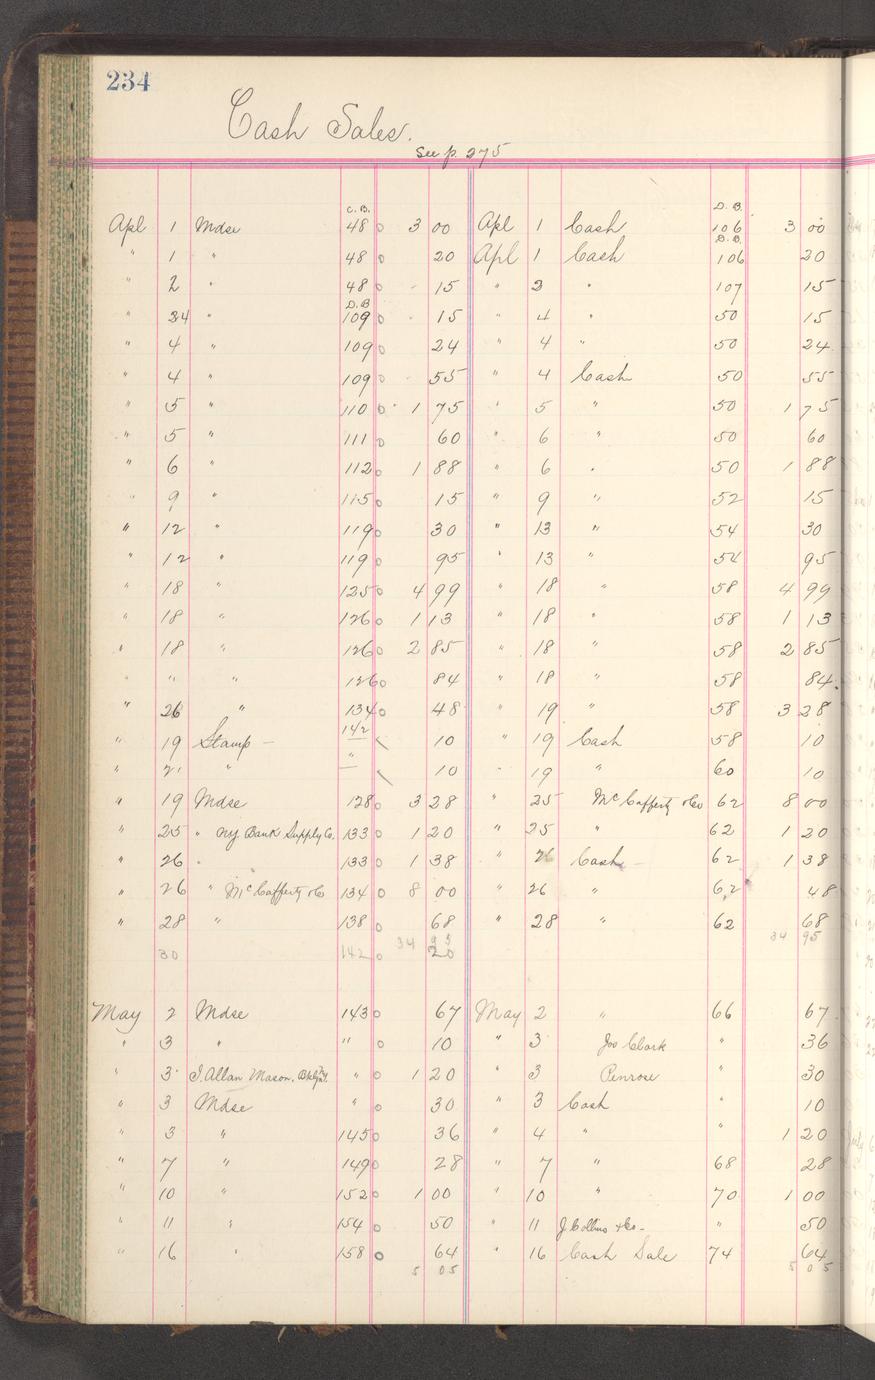 234
Cash Sales.
See p. 275
C.B. D.B.
Apl 1 Mdse 48 0 3 00 Apl 1 Cash 106 3 00
D.B.
" 1 " 48 0 20 Apl 1 Cash 106 20
" 2 " 48 0 15 " 2 " 107 15
D.B
" 4 " 109 0 15 " 4 " 50 15
" 4 " 109 0 24 " 4 " 50 24
" 4 " 109 0 55 " 4 Cash 50 55
" 5 " 110 0 1 75 " 5 " 50 1 75
" 5 " 111 0 60 " 6 " 50 60
" 6 " 112 0 1 88 " 6 " 50 1 88
" 9 " 115 0 15 " 9 " 52 15
" 12 " 119 0 30 " 13 " 54 30
" 12 " 119 0 95 " 13 " 54 95
" 18 " 125 0 4 99 " 18 " 58 4 99
" 18 " 126 0 1 13 " 18 " 58 1 13
" 18 " 126 0 2 85 " 18 " 58 2 85
" " " 126 0 84 " 18 " 58 84
" 26 " 134 0 48 " 19 " 58 3 28
" 19 Stamp - 142 10 " 19 Cash 58 10
" 21 " " 10 " 19 " 60 10
" 19 Mdse 128 0 3 28 " 25 McCafferty &Co 62 8 00
" 25 " NY. Bank Supply Co. 133 0 1 20 " 25 " 62 1 20
" 26 " 133 0 1 38 " 26 Cash - 62 1 38
" 26 " McCafferty &Co 134 0 8 00 " 26 " 62 48
" 28 " 138 0 68 " 28 " 62 68
34 95 34 95
30 142 0 20
May 2 Mdse 143 0 67 May 2 " 66 67
" 3 " " 0 10 " 3 Jos Clark " 36
" 3 J. Allan Mason, Bklyn. NY " 0 1 20 " 3 Penrose " 30
" 3 Mdse " 0 30 " 3 Cash " 10
" 3 " 145 0 36 " 4 " " 1 20
" 7 " 149 0 28 " 7 " 68 28
" 10 " 152 0 1 00 " 10 " 70 1 00
" 11 " 154 50 " 11 J. Collins & Co - " 50
" 16 " 158 0 64 " 16 Cash Sale 74 64
5 05 5 05